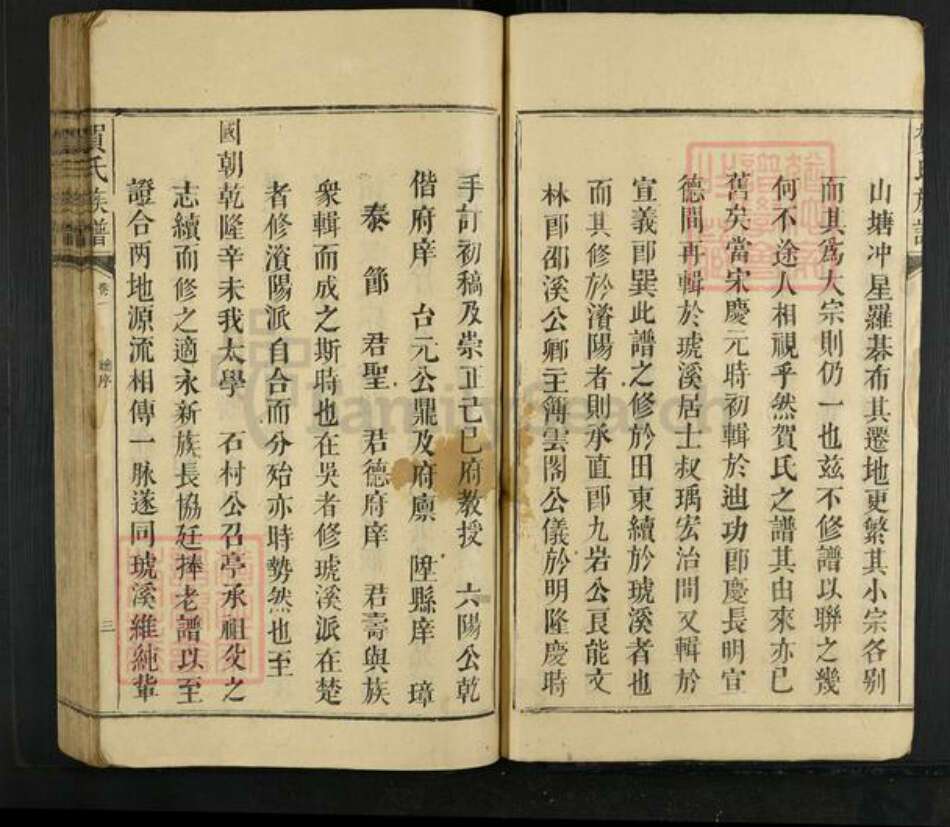 山塘冲星羅棊布其遷地更繁其小宗各别
而其爲大宗則仍一也兹不修譜以聯之幾
何不途人相視乎然賀氏之譜其由來亦已
舊矣當宋慶元時初輯於迪功郎慶長明宣
德間再輯於琥溪居士叔瑀宏治間又輯於
宣義郎巽此譜之修於田東續於琥溪者也
而其修於濱陽者則承直郎九岩公良能文
林郎邵溪公卿主簿雲閣公儀於明隆慶時
手訂初稿及崇正己巳府教授 六陽公乾
偕府庠 台元公鼎及府廪 陞縣庠 璋
泰 節 君聖 君德府庠 君壽與族
衆輯而成之斯時也在吳者修琥溪派在楚
者修濱陽派自合而分殆亦時勢然也至
國朝乾隆辛未我太學 石村公召亭承祖父之
志續而修之適永新族長協廷捧老譜以至
證合两地源流相傳一脉遂同琥溪維純輩
賀氏族譜
卷一
三
FamilySearch